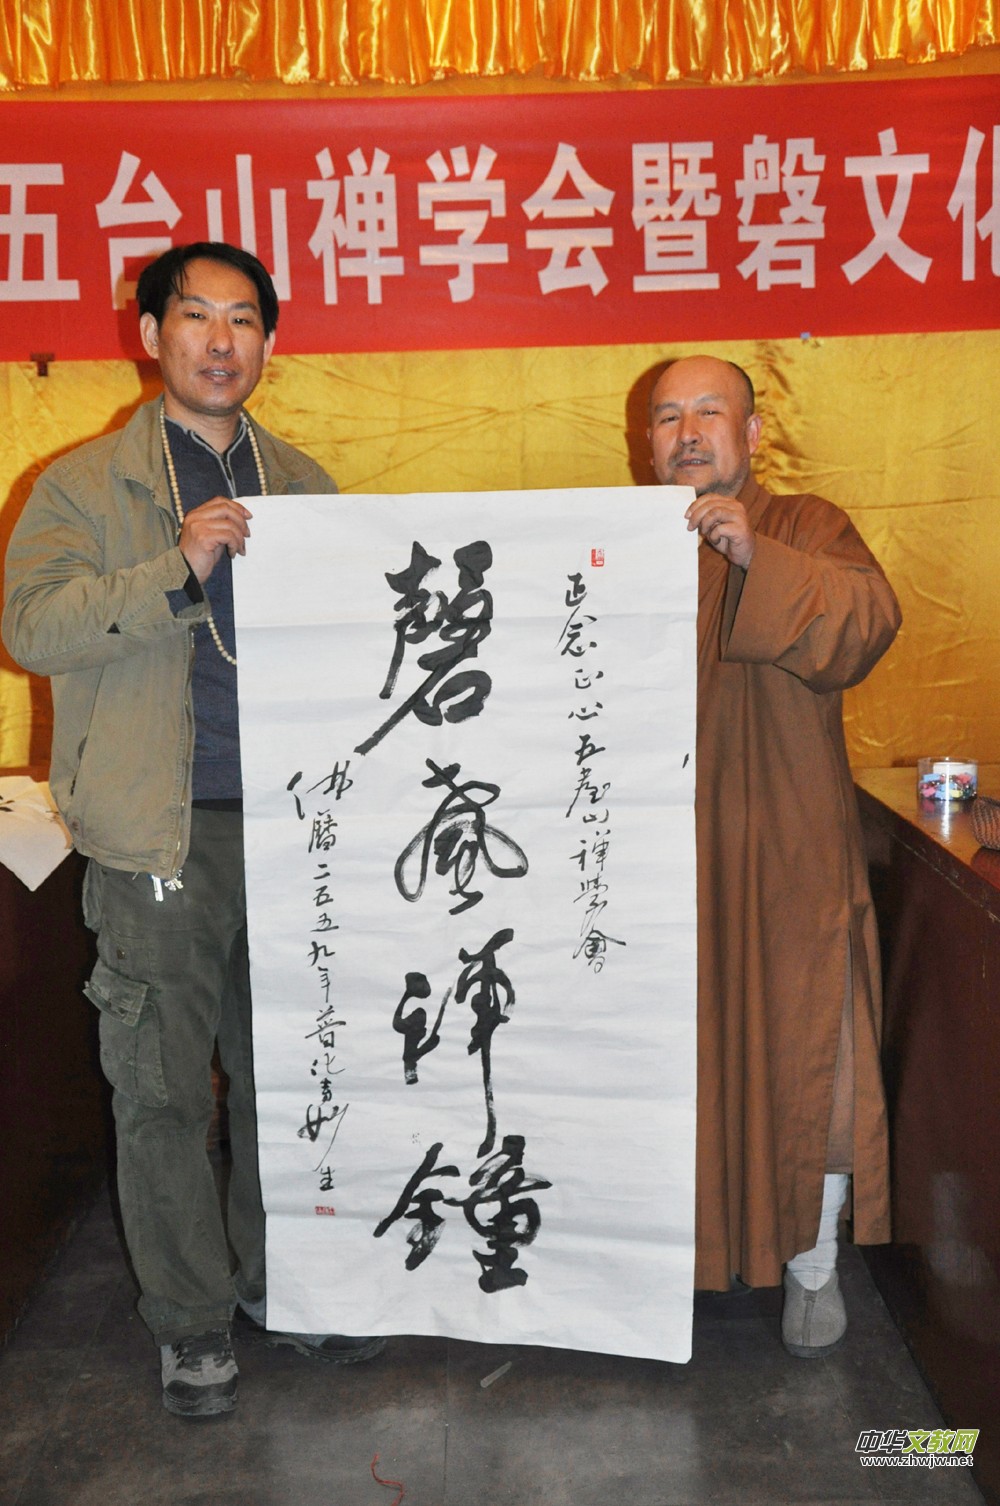 五台山禅学会暨磐文化
正念正心五臺山禪學會
磬禪鐘
佛曆二五五九年普化寺妙生
中华文教网
www.zhwjw.net